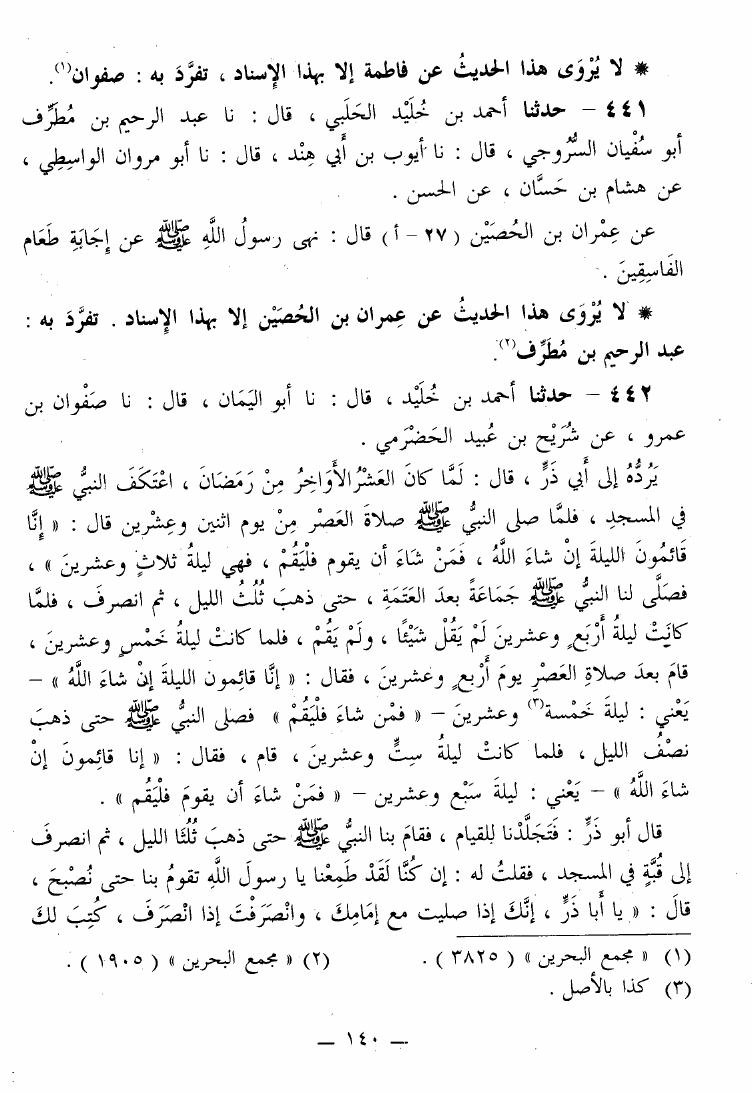 * لا يُرْوَى هذا الحديثُ عن فاطمة إلا بهذا الإسناد ، تفرَّدَ به : صفوان(١).
٤٤١ – حدثنا أحمد بن خُلَيْد الحَلَبي ، قال : نا عبد الرحيم بن مُطَرِّف
أبو سُفْيان السَّرُوجي ، قال : نا أيوب بن أَبي هِنْد ، قال : نا أبو مروان الواسِطِي ،
عن هشام بن حَسَّان ، عن الحسن .
عن عِمْران بن الحُصَيْن ( ٢٧ – أ ) قال : نهى رسولُ اللَّهِ ﷺ عن إِجَابَةِ طَعَام
الفَاسِقِينَ .
* لا يُرْوَى هذا الحديثُ عن عِمران بن الحُصَيْن إلا بهذا الإسناد . تفرَّدَ به :
عبد الرحيم بن مُطَرِّف(٢).
٤٤٢ – حدثنا أحمد بن خُلَيْد ، قال : نا أبو اليَمَان ، قال : نا صَفْوان بن
عمرو ، عن شُرَيْح بن عُبيد الحَضْرَمي .
يَرُدُّهُ إلى أَبي ذَرٍّ ، قال : لَمَّا كانَ العَشْرُ الأَوَاخِرُ مِنْ رَمَضَانَ ، اعْتَكَفَ النبيُّ ﷺ
في المسجدِ ، فلمَّا صلى النبيُّ ﷺ صلاةَ العَصْرِ مِنْ يوم اثنين وعِشْرين قال : « إِنَّا
قَائِمُونَ الليلةَ إنْ شاءَ اللَّهُ ، فَمَنْ شَاءَ أن يقوم فلْيَقُمْ ، فهي ليلةُ ثلاثٍ وعشرينَ » ،
فصَلَّى لنا النبيُّ ﷺ جَمَاعَةً بعدَ العَتَمَةِ ، حتى ذهبَ ثُلُثُ الليل ، ثم انصرفَ ، فلمَّا
كانَتْ ليلةُ أَرْبَعٍ وعشرينَ لَمْ يَقُلْ شَيْئًا ، ولَمْ يَقُمْ ، فلما كانتْ ليلةُ خَمْسٍ وعشرينَ ،
قامَ بعدَ صلاةِ العَصْرِ يومَ أَرْبعٍ وعشرينَ ، فقال : « إنَّا قائِمون الليلةَ إنْ شاءَ اللَّهُ » –
يَعْني : ليلةَ خَمْسة(٣) وعشرينَ – « فمْن شاءَ فلْيَقُمْ » فصلى النبيُّ ﷺ حتى ذهبَ
نصْفُ الليل ، فلما كانتْ ليلةُ سِتٍّ وعشرينَ ، قام ، فقال : « إنا قائِمونَ إنْ
شاءَ اللَّهُ » – يَعْني : ليلةَ سَبْع وعشرين – « فمَنْ شاءَ أن يقومَ فلْيَقُم » .
قال أبو ذَرٍّ : فَتَجَلَّدْنا للقيام ، فقامَ بنا النبيُّ ﷺ حتى ذهبَ ثُلُثا الليل ، ثم انصرفَ
إلى قُبَّةٍ في المسجد ، فقلتُ له : إن كنَّا لَقَدْ طَمِعْنا يا رسولَ اللَّهِ تقومُ بنا حتى نُصْبحَ ،
قالَ : « يا أَبا ذَرٍّ ، إنَّكَ إذا صليت مع إمَامِكَ ، وانْصَرَفْتَ إذا انْصَرَفَ ، كُتِبَ لكَ
(١) « مجمع البحرين » ( ٣٨٢٥ ) . (٢) « مجمع البحرين » ( ١٩٠٥ ) .
(٣) كذا بالأصل .
– ١٤٠ –